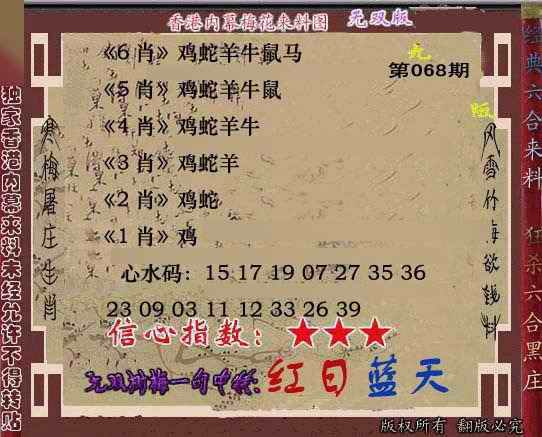 香港内幕梅花来料图 无双版
《6 肖》鸡蛇羊牛鼠马
第068期
《5 肖》鸡蛇羊牛鼠
《4 肖》鸡蛇羊牛
《3 肖》鸡蛇羊
《2 肖》鸡蛇
《1 肖》鸡
心水码：15 17 19 07 27 35 36
23 09 03 11 12 33 26 39
信心指数：★★★
红日 蓝天
独家香港内幕来料未经允许不得转贴
寒梅屠庄生肖
经典六合来料
狂杀六合黑庄
版权所有 翻版必究